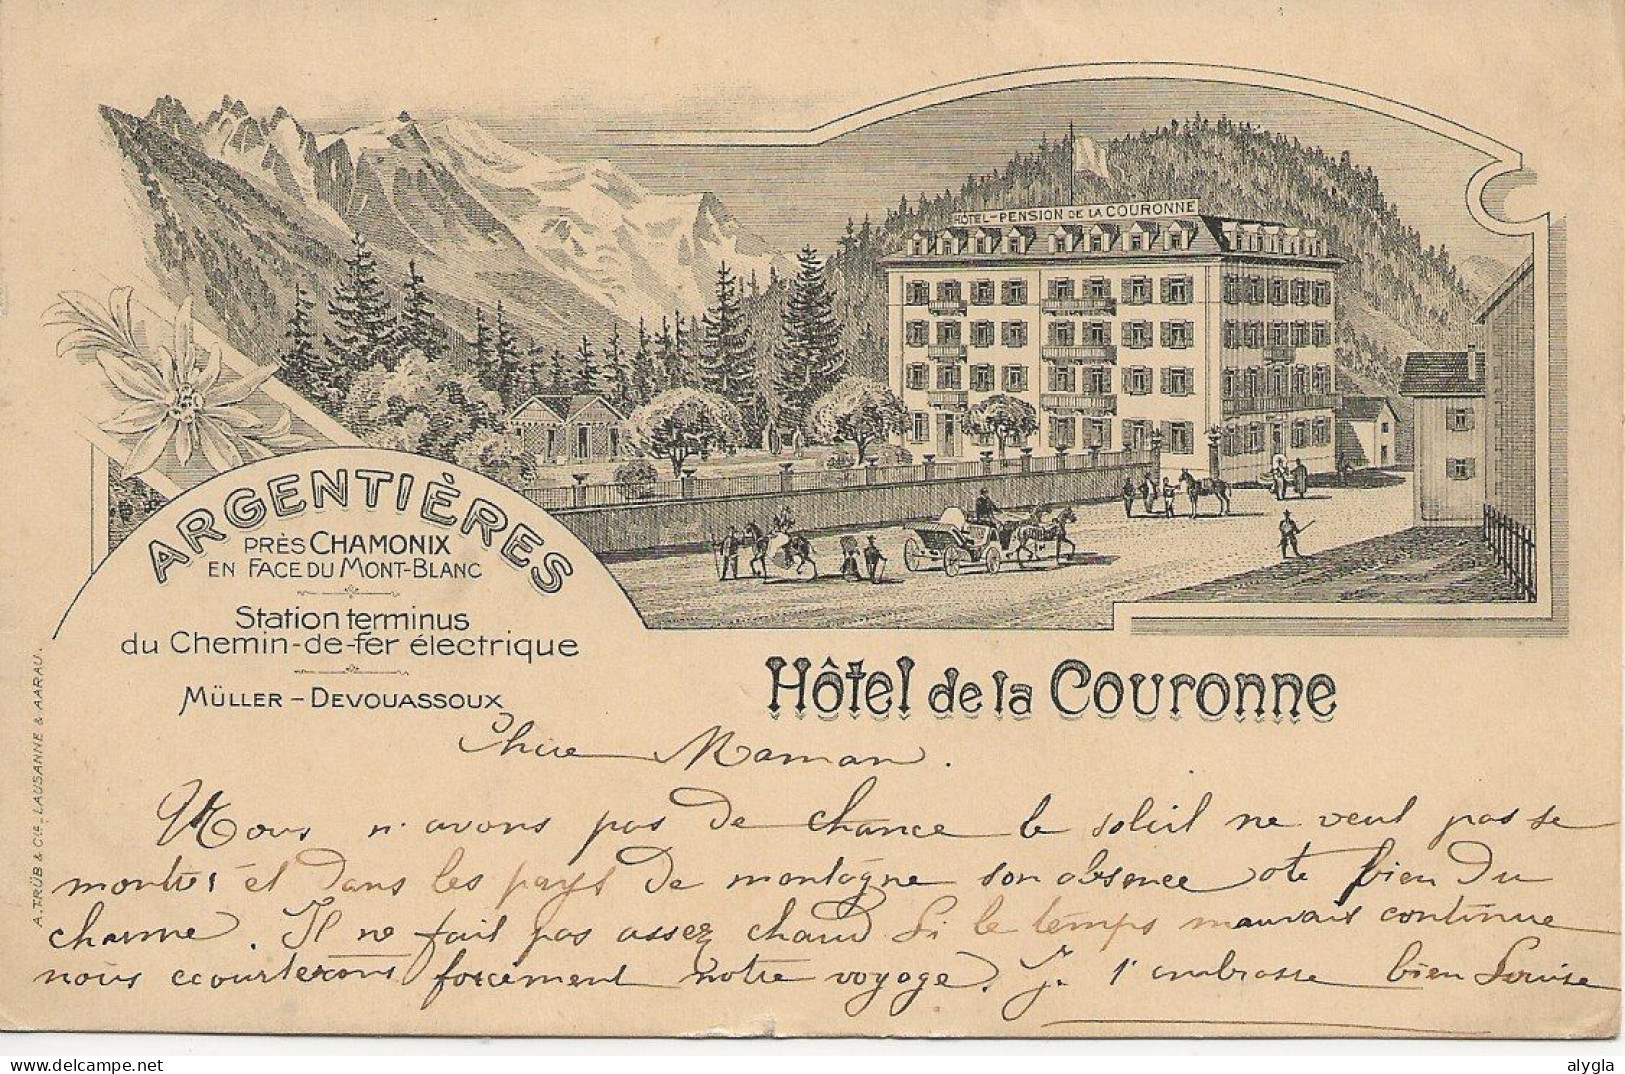 HÔTEL-PENSION DE LA COURONNE
ARGENTIÈRES
PRÈS CHAMONIX
EN FACE DU MONT-BLANC
Station terminus
du Chemin-de-fer électrique
MÜLLER - DEVOUASSOUX
Hôtel de la Couronne
A. TRÜB & CIE. LAUSANNE & AARAU.
Chère Maman.
Nous n'avons pas de chance le soleil ne veut pas se
montrer et dans les pays de montagne son absence ote bien du
charme. Il ne fait pas assez chaud Si le temps mauvais continue
nous ecourterons forcement notre voyage. Je t'embrasse bien Louise
alygla